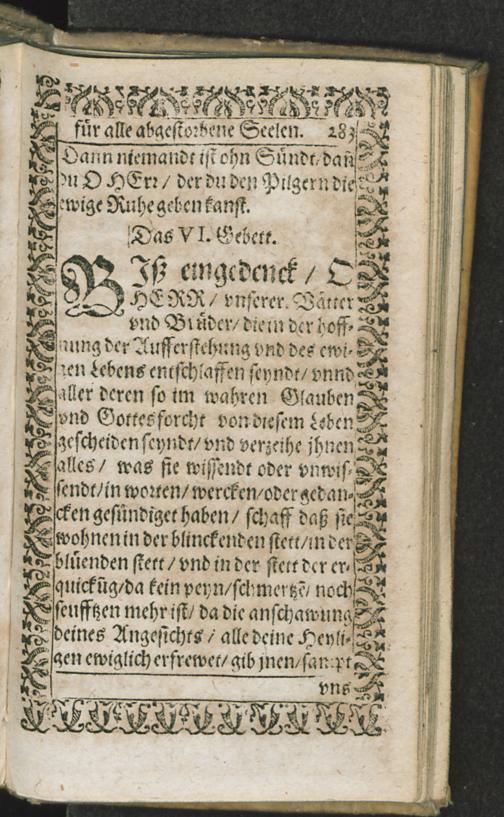 für alle abgestorbene Seelen. 283
Dann niemandt ist ohn Sündt/dañ
du O HErr/ der du den Pilgern die
ewige Ruhe geben kanst.
Das VI. Gebett.
BIß eingedenck / O
HERR/ vnserer Vätter
vnd Brüder/die in der hoff-
nung der Aufferstehung vnd des ewi-
gen Lebens entschlaffen seyndt/ vnnd
aller deren so im wahren Glauben
vnd Gottesforcht von diesem Leben
gescheiden seyndt/ vnd verzeihe jhnen
alles/ was sie wissendt oder vnwis-
sendt/in worten/wercken/oder gedan-
cken gesündiget haben/ schaff daß sie
wohnen in der blinckenden stett/in der
blüenden stett/ vnd in der stett der er-
quickūg/da kein peyn/schmertzē/ noch
seufftzen mehr ist/ da die anschawung
deines Angesichts / alle deine Heyli-
gen ewiglich erfrewet/ gib jnen/sampt
vns